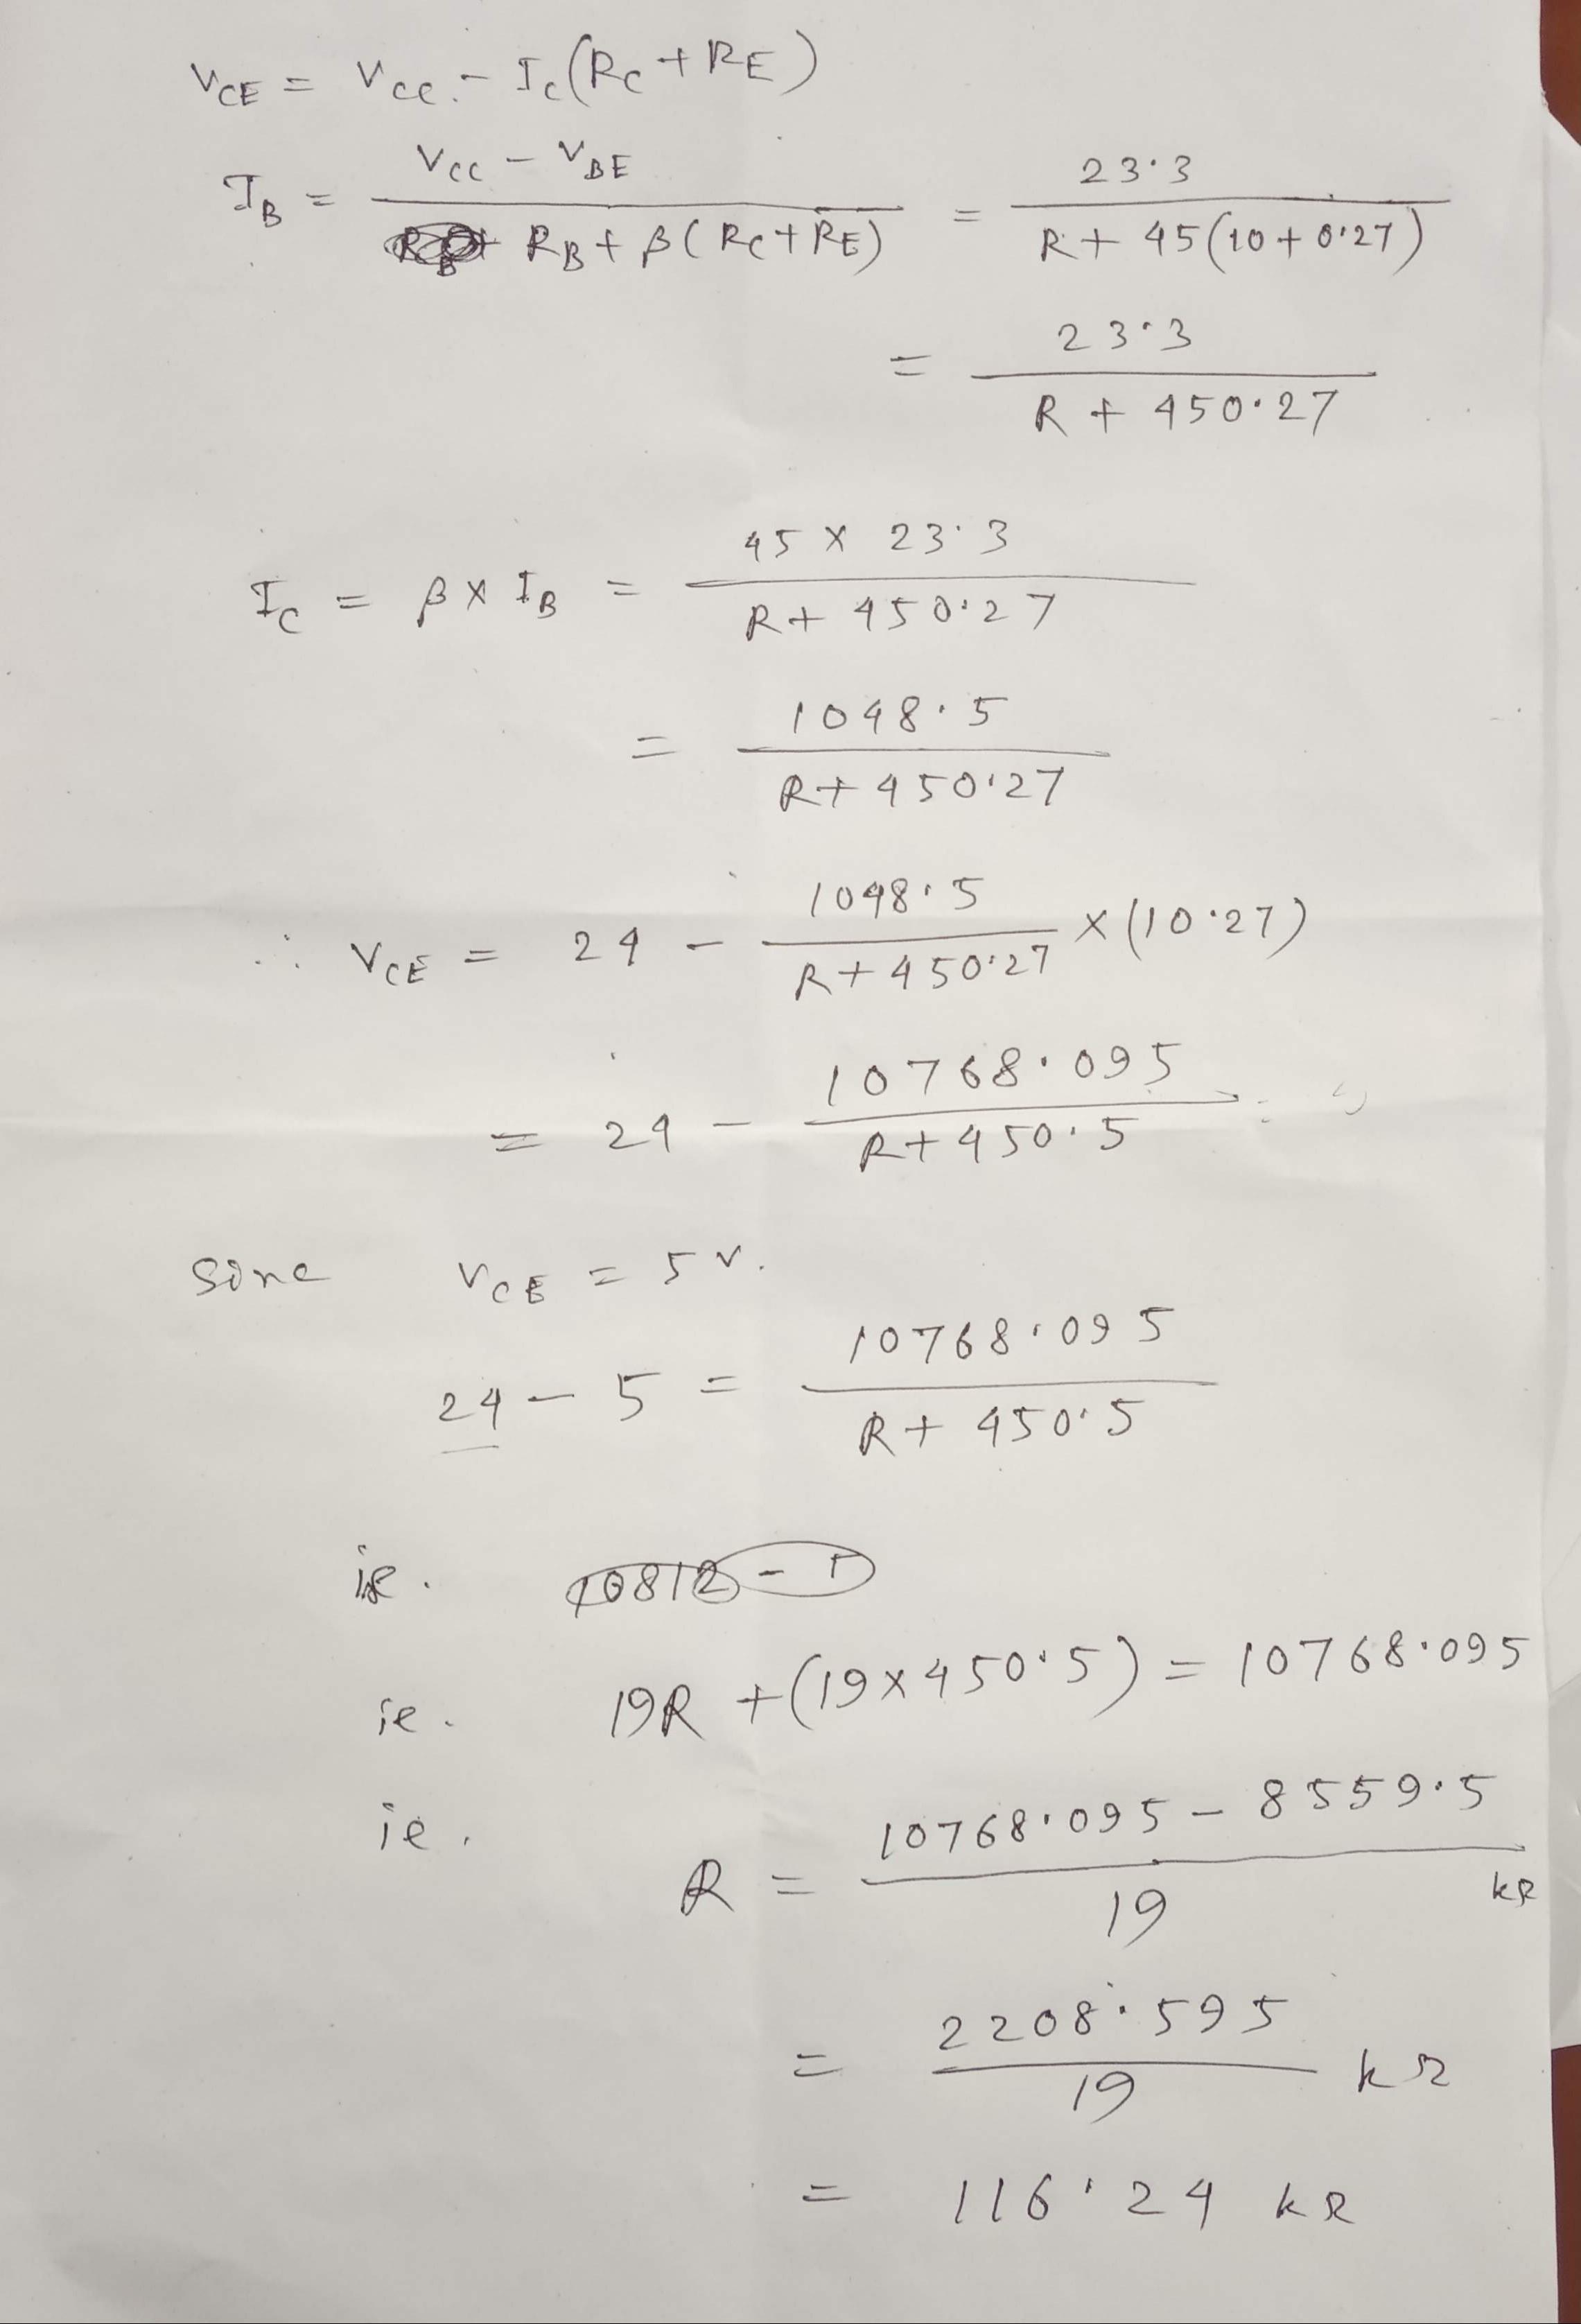 V_CE = V_CC - I_C (R_C + R_E)
I_B = (V_CC - V_BE) / (R_B + β(R_C + R_E)) = 23.3 / (R + 45(10 + 0.27))
= 23.3 / (R + 450.27)
I_C = β × I_B = (45 × 23.3) / (R + 450.27)
= 1048.5 / (R + 450.27)
∴ V_CE = 24 - 1048.5 / (R + 450.27) × (10.27)
= 24 - 10768.095 / (R + 450.5)
Since V_CE = 5 V.
24 - 5 = 10768.095 / (R + 450.5)
ie.
ie. 19R + (19 × 450.5) = 10768.095
ie. R = (10768.095 - 8559.5) / 19 kΩ
= 2208.595 / 19 kΩ
= 116.24 kΩ